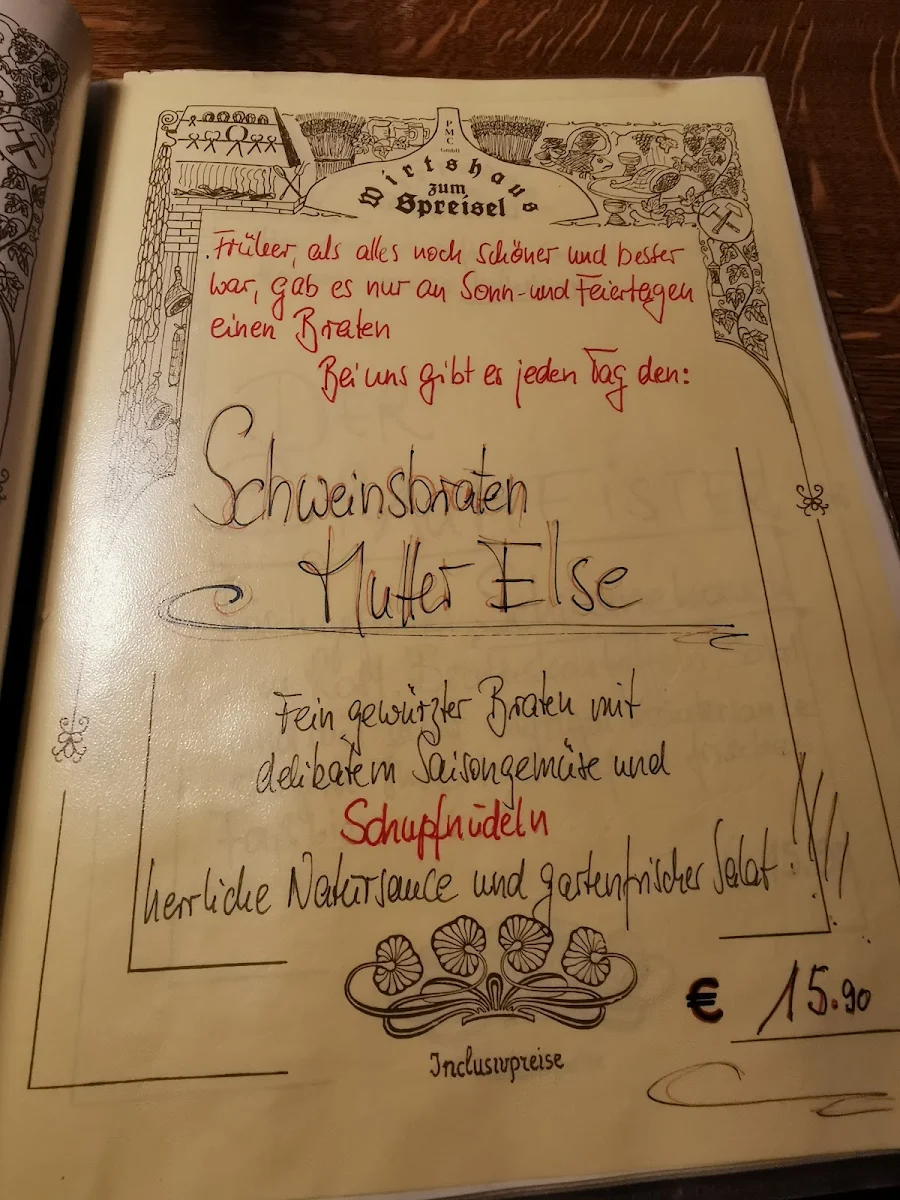 M
C
GmbH
Wirtshaus
zum
Spreisel
Früher, als alles noch schöner und besser
war, gab es nur an Sonn-und Feiertagen
einen Braten
Bei uns gibt es jeden Tag den:
Schweinsbraten
Mutter Else
Fein gewürzter Braten mit
delikatem Saisongemüse und
Schupfnudeln
herrliche Natursauce und gartenfrischer Salat!!!
€ 15.90
Inclusivpreise